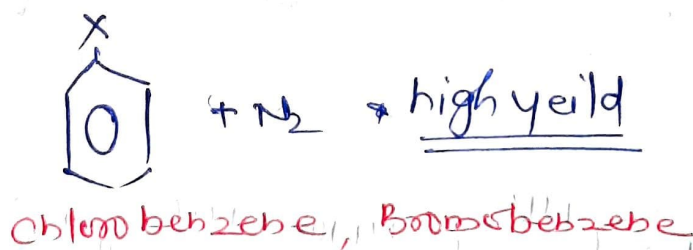 X
+ N₂ * high yeild
Chlorobenzene, Bromobenzene